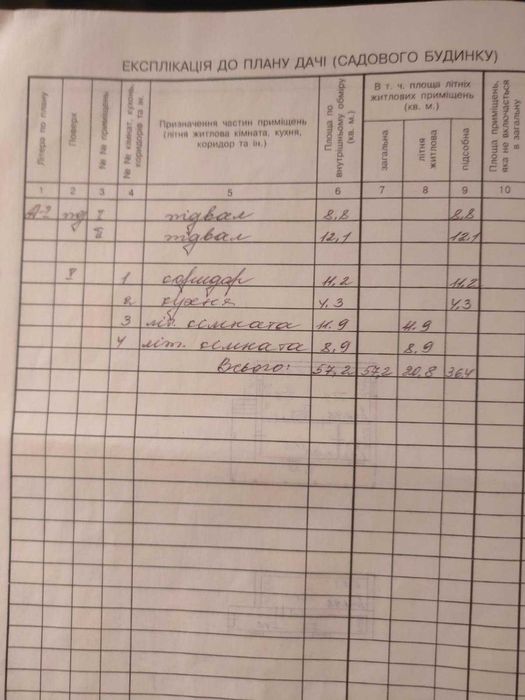 ЕКСПЛІКАЦІЯ ДО ПЛАНУ ДАЧІ (САДОВОГО БУДИНКУ)
Літера по плану
Поверх
№ № приміщень
№ № кімнат, кухонь, коридорів та ін.
Призначення частин приміщень (літня житлова кімната, кухня, коридор та ін.)
Площа по внутрішньому обміру (кв. м.)
В т. ч. площа літніх житлових приміщень (кв. м.)
загальна
літня житлова
підсобна
Площа приміщень, яка не включається в загальну
1 2 3 4 5 6 7 8 9 10
А-2 пд І підвал 8,8 8,8
підвал 12,1 12,1
І 1 коридор 11,2 11,2
2 кухня 4,3 4,3
3 літ. кімната 11.9 11.9
4 літ. кімната 8,9 8,9
Всього: 57,2 57,2 20,8 36,4